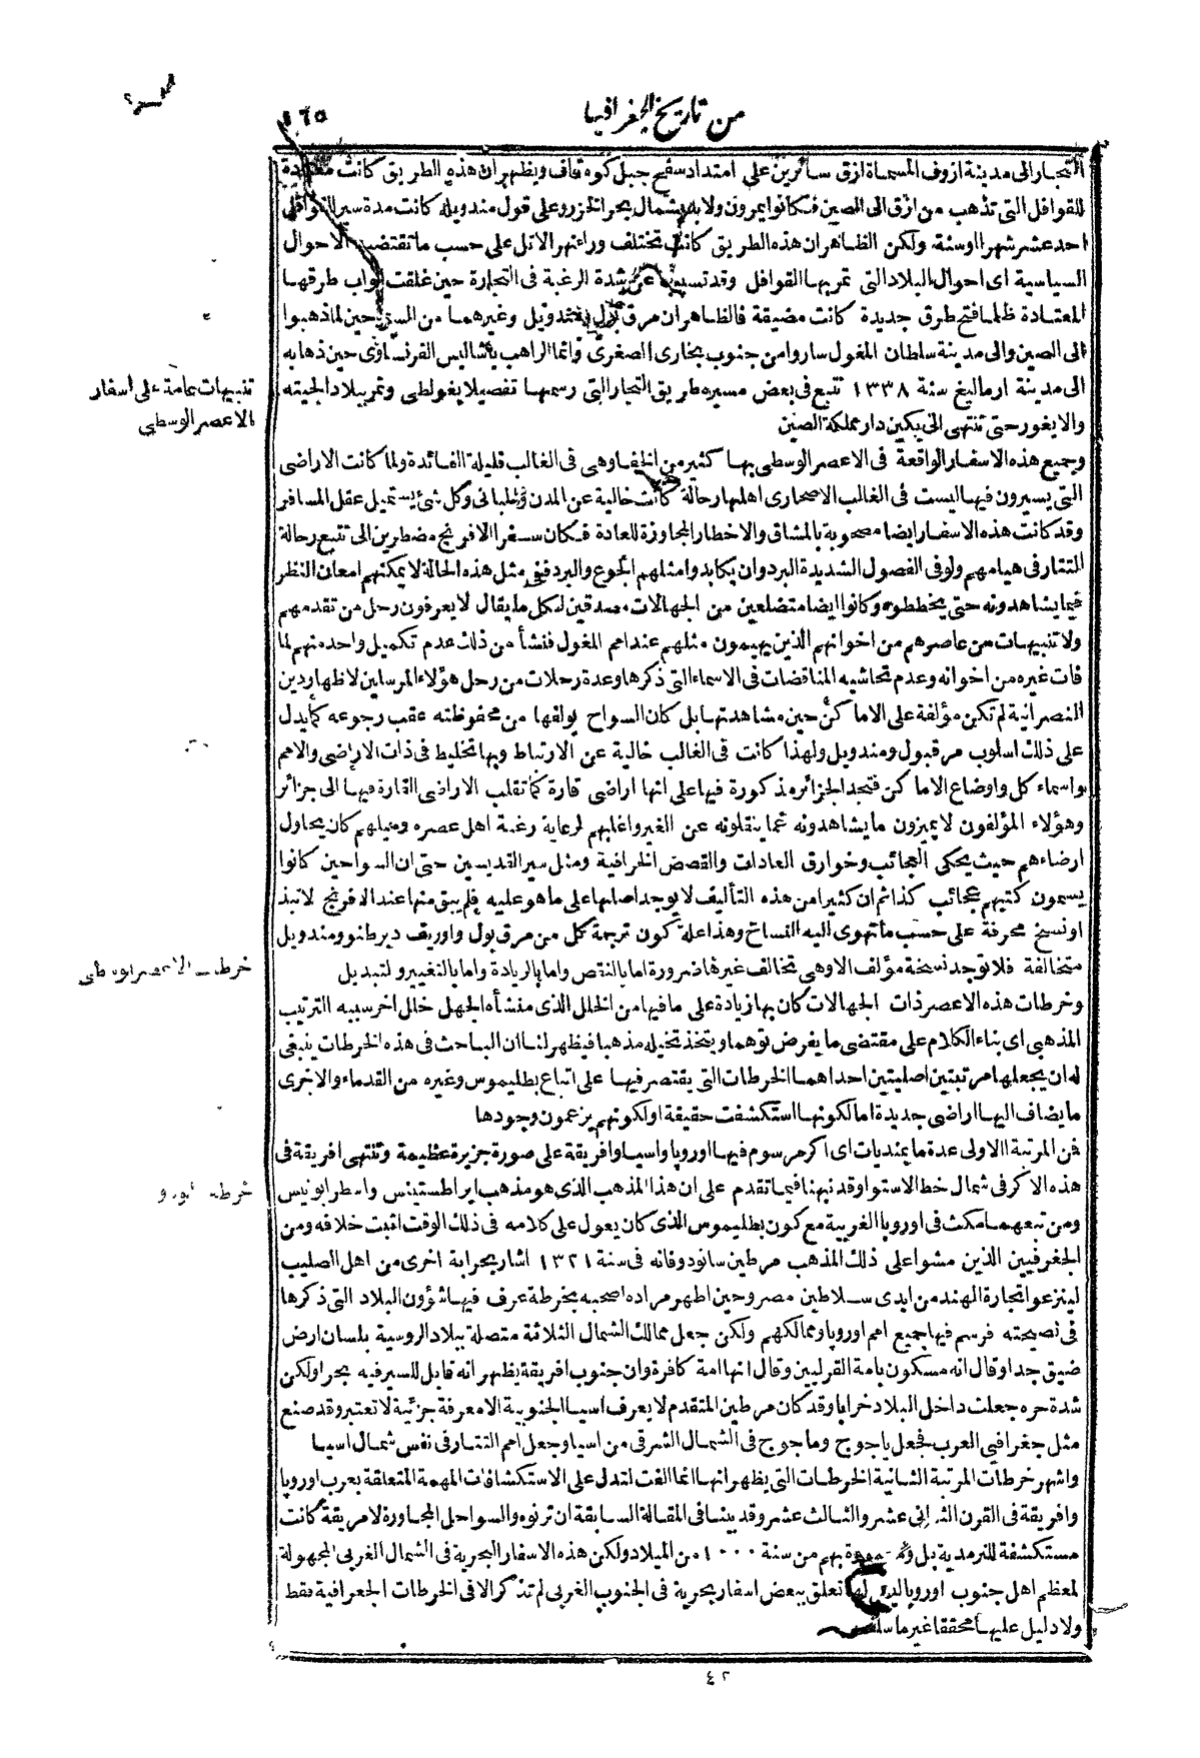 من تاريخ الجغرافيا
١٦٥
التجار الى مدينة ازوف المسماة ازق سائرين على امتداد سفح جبل كوه قاف ويظهر ان هذه الطريق كانت معتادة
للقوافل التى تذهب من ازق الى الصين فكانوا يمرون ولابد بشمال بحر الخزر وعلى قول مندويله كانت مدة سير القوافل
احد عشر شهرا او سنة ولكن الظاهر ان هذه الطريق كانت تختلف وراء نهر الاتل على حسب ما تقتضيه الاحوال
السياسية اى احوال البلاد التى تمر بها القوافل وقد تسبب عن شدة الرغبة فى التجارة حين غلقت ابواب طرقها
المعتادة ظلما فتح طرق جديدة كانت مضيقة فالظاهر ان مرق بول ومندويل وغيرهما من المسيحين لما ذهبوا
الى الصين والى مدينة سلطان المغول ساروا من جنوب بخارى الصغرى وانما الراهب باشاليس الفرنساوى حين ذهابه
الى مدينة ارماليغ سنة ١٣٣٨ تتبع فى بعض مسيره طريق التجار التى رسمها تفصيلا يغولطى وتمر ببلاد الجيته
والايغور حتى تنتهى الى يكين دار مملكة الصين
تنبيهات عامة على اسفار
الاعصر الوسطى
وجميع هذه الاسفار الواقعة فى الاعصر الوسطى بها كثير من الخفا وهى فى الغالب قليلة الفائدة ولما كانت الاراضى
التى يسيرون فيها ليست فى الغالب الا صحارى اهلها رحالة كانت خالية عن المدن والمبانى وكل شئ يستميل عقل المسافر
وقد كانت هذه الاسفار ايضا مصحوبة بالمشاق والاخطار المجاوزة للعادة فكان سفرا الافرنج مضطرين الى تتبع رحالة
التتار فى هيامهم ولو فى الفصول الشديدة البرد وان يكابدوا مثلهم الجوع والبرد ففى مثل هذه الحالة لا يمكنهم امعان النظر
فيما يشاهدونه حتى يخططوه وكانوا ايضا متضلعين من الجهالات مصدقين لكل ما يقال لا يعرفون رحل من تقدمهم
ولا تنبيهات من عاصرهم من اخوانهم الذين يهيمون مثلهم عند امم المغول فنشأ من ذلك عدم تكميل واحد منهم لما
فات غيره من اخوانه وعدم تحاشيه المناقضات فى الاسماء التى ذكرها وعدة رحلات من رحل هؤلاء المرسلين لاظهار دين
النصرانية لم تكن مؤلفة على الاماكن حين مشاهدتها بل كان السواح يولفها من محفوظته عقب رجوعه كما يدل
على ذلك اسلوب مرقبول ومندويل ولهذا كانت فى الغالب خالية عن الارتباط وبها تخليط فى ذات الاراضى والامم
واسماء كل واوضاع الاماكن فتجد الجزائر مذكورة فيها على انها اراضى قارة كما تقلب الاراضى القارة فيها الى جزائر
وهؤلاء المؤلفون لا يميزون ما يشاهدونه عما ينقلونه عن الغير واغلبهم لرعاية رغبة اهل عصره وميلهم كان يحاول
ارضاءهم حيث يحكى العجائب وخوارق العادات والقصص الخرافية ومثل سير القديسين حتى ان السواحين كانوا
يسمون كتبهم عجائب كذا ثم ان كثيرا من هذه التأليف لا يوجد اصلها على ما هو عليه فلم يبق منها عند الافرنج لا نبذ
او نسخ محرفة على حسب ما تهوى اليه النساخ وهذا علة كون ترجمة كل من مرق بول واوريق ديرطنو ومندويل
متخالفة فلا توجد نسخة مؤلف الا وهى تخالف غيرها ضرورة اما بالنقص واما بالزيادة واما بالتغيير ولتبديل
خرطات الاعصر الوسطى
وخرطات هذه الاعصر ذات الجهالات كان بها زيادة على ما فيها من الخلل الذى منشأه الجهل خلل اخر سببه الترتيب
المذهبى اى بناء الكلام على مقتضى ما يفرض توهما ويتخذ تخيله مذهبا فيظهر لنا ان الباحث فى هذه الخرطات ينبغى
له ان يجعلها مرتبتين اصليتين احداهما الخرطات التى يقتصر فيها على اتباع بطليموس وغيره من القدماء والاخرى
ما يضاف اليها اراضى جديدة اما لكونها استكشفت حقيقة او لكونهم يزعمون وجودها
فمن المرتبة الاولى عدة مايمنديات اى اكر مرسوم فيها اوروپا واسيا وافريقة على صورة جزيرة عظيمة وتنتهى افريقة فى
هذه الاكر فى شمال خط الاستوا وقد نبهنا فيما تقدم على ان هذا المذهب الذى هو مذهب ايراطستينس واسطرابونيس
ومن تبعهما مكث فى اوروپا الغربية مع كون بطليموس الذى كان يعول على كلامه فى ذلك الوقت اثبت خلافه ومن
الجغرفيين الذين مشوا على ذلك المذهب مرطين سانودو فانه فى سنة ١٣٢١ اشار بحرابة اخرى من اهل الصليب
لينزعوا تجارة الهند من ايدى سلاطين مصر وحين اظهر مراده اصحبه بخرطة عرف فيها شؤون البلاد التى ذكرها
فى نصيحته فرسم فيها جميع امم اوروپا وممالكهم ولكن جعل ممالك الشمال الثلاثة متصلة ببلاد الروسية بلسان ارض
ضيق جدا وقال انه مسكون بامة القرليين وقال انها امة كافرة وان جنوب افريقة يظهر انه قابل للسير فيه بحرا ولكن
شدة حره جعلت داخل البلاد خرابا وقد كان مرطين المتقدم لا يعرف اسيا الجنوبية الا معرفة جزئية لا تعتبر وقد صنع
مثل جغرافيى العرب فجعل ياجوج وماجوج فى الشمال الشرقى من اسيا وجعل امم التتار فى نفس شمال اسيا
واشهر خرطات المرتبة الثانية الخرطات التى يظهر انها انما الفت لتدل على الاستكشافات المهمة المتعلقة بغرب اوروپا
وافريقة فى القرن الثانى عشر والثالث عشر وقد بينا فى المقالة السابقة ان ترنوه والسواحل المجاورة لامريقة كانت
مستكشفة للنرمدية بل بهم من سنة ١٠٠٠ من الميلاد ولكن هذه الاسفار البحرية فى الشمال الغربى المجهولة
لمعظم اهل جنوب اوروپا ليس لها تعلق ببعض اسفار بحرية فى الجنوب الغربى لم تذكر الا فى الخرطات الجغرافية فقط
ولا دليل عليها محققا غير ما سلف
٤٢